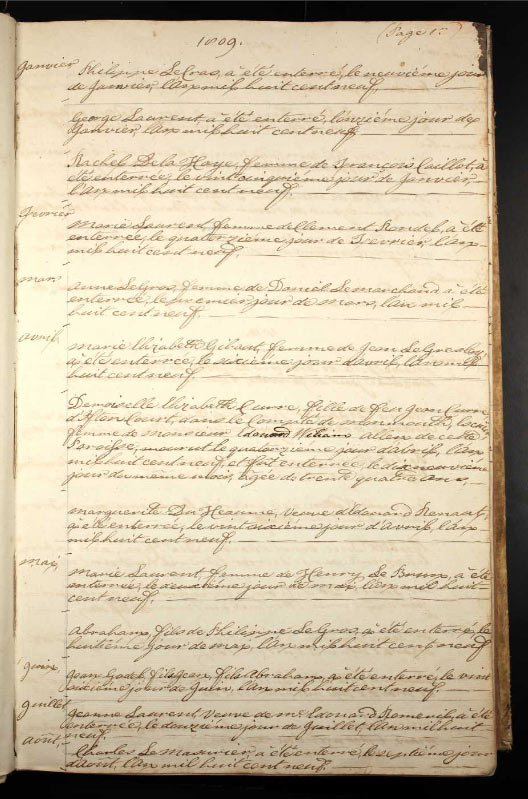 1809.
(Page 1re)
Janvier Philippe LeCras, à été enterré, le neuviéme jour
de Janvier, l'an mil huit cent neuf.
George Laurent, à été enterré, l'onziéme jour de
Janvier, l'an mil huit cent neuf.
Rachel De la Haye, femme de François Caillot, à
été enterrée, le vint cinquiéme jour de Janvier,
l'an mil huit cent neuf.
Fevrier
Marie Laurent, femme de Clement Rondel, à été
enterrée, le quatorziéme jour de Fevrier, l'an
mil huit cent neuf
mars
Anne LeGros, femme de Daniel Lemarchand à été
enterrée, le premier jour de mars, l'an mil
huit cent neuf.
avril
marie Elizabeth Gibaut, femme de Jean LeGresley,
à été enterrée, le sixiéme jour d'avril, l'an mil
huit cent neuf.
Demoiselle Elizabeth Curre, fille de feu Jean Curre
d'Itton Court, dans le Comté de monmouth,
femme de monsieur Edouard Wiliams Allen de cette
Paroisse, mourut le quatorziéme jour d'avril, l'an
mil huit cent neuf, et fut enterrée, le dix neuviéme
jour du même mois, agée de trente quatre ans,
marguerite Du Heaume, veuve d'Edouard Renault,
à été enterrée, le vint sixiéme jour d'Avril, l'an
mil huit cent neuf.
mai
Marie Laurent, femme de Henry Le Brun, à été
enterrée, le deuxiéme jour de mai, l'an mil huit
cent neuf.
Abraham, fils de Philippe LeGros, à été enterré, le
huitiéme jour de mai, l'an mil huit cent neuf
Juin,
Jean Godel fils Jean, fils Abraham, à été enterré, le vint
sixiéme jour de Juin, l'an mil huit cent neuf.
Juillet
Jeanne Laurent, Veuve de mr Edouard Romeril, à été
enterrée, le douziéme jour de Juillet, l'an mil huit
neuf.
Août,
Charles Le masurier, à été enterré, le septiéme jour
d'août, l'an mil huit cent neuf.